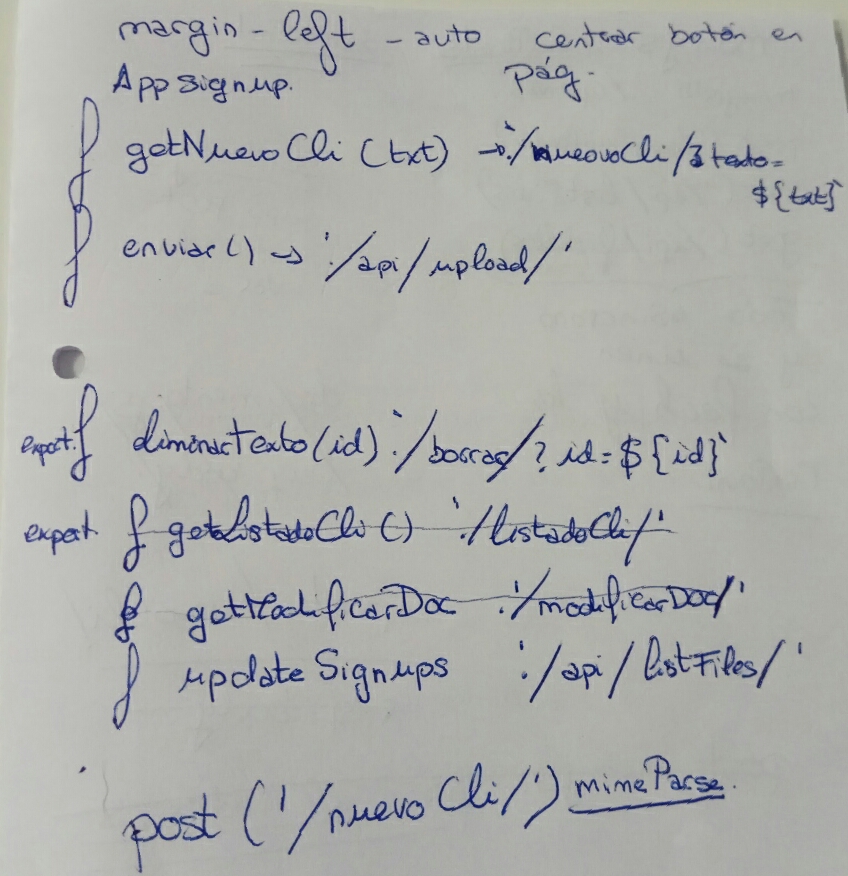 margin - left - auto centrar botón en
App signup. pág.
f getNuevoCli (txt) → `./nuevoCli/?texto=
${txt}`
f enviar() → './api/upload/'
export f eliminarTexto(id) `./borrar/?id=${id}`
export f getListadoCli () './listadoCli/'
f getModificarDoc './modificarDoc/'
f updateSignups './api/listFiles/'
post ('/nuevoCli/') mimeParse.